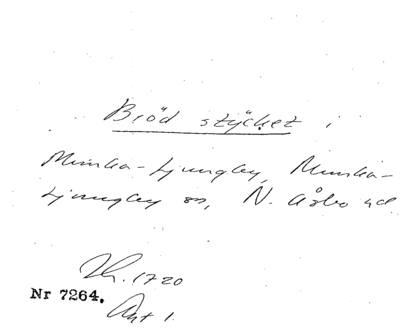 Brödstycket i
Munka-Ljungby, Munka-
Ljungby sn, N. Åsbo hd.
Lh. 1720
Nr 7264.
Avt 1.